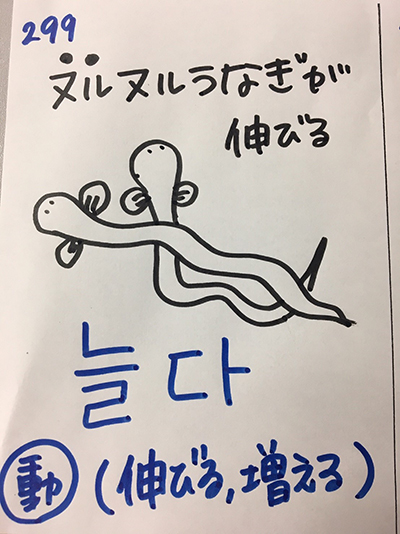 299
ヌルヌルうなぎが
伸びる
늘다
動 (伸びる,増える)